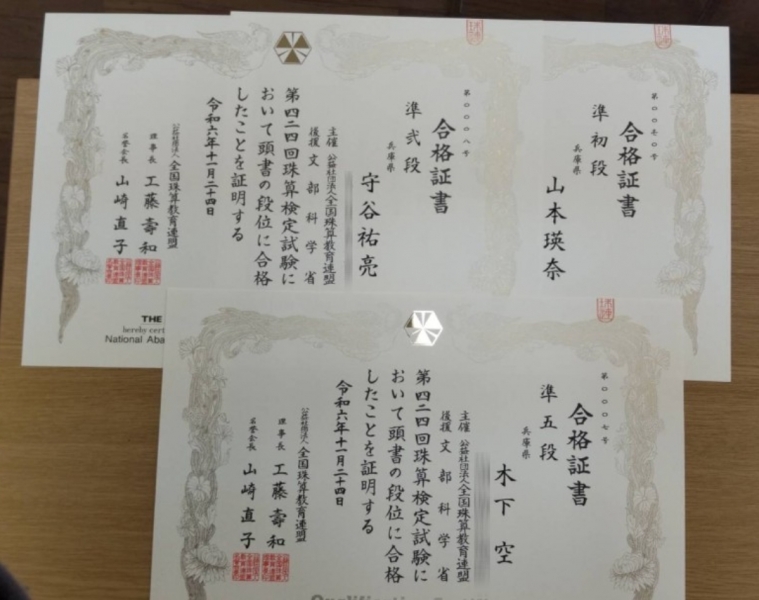 合格証書
第〇〇〇〇八号
準弐段
兵庫県
守谷祐亮
主催 公益社団法人全国珠算教育連盟
後援 文部科学省
第四二四回珠算検定試験に
おいて頭書の段位に合格
したことを証明する
令和六年十一月二十四日
公益社団法人 全国珠算教育連盟
理事長 工藤壽和
名誉会長 山崎直子
THE
hereby cert
National Aba
合格証書
準初段
兵庫県
山本瑛奈
第〇〇〇〇七号
合格証書
準五段
兵庫県
木下空
主催 公益社団法人全国珠算教育連盟
後援 文部科学省
第四二四回珠算検定試験に
おいて頭書の段位に合格
したことを証明する
令和六年十一月二十四日
公益社団法人 全国珠算教育連盟
理事長 工藤壽和
名誉会長 山崎直子